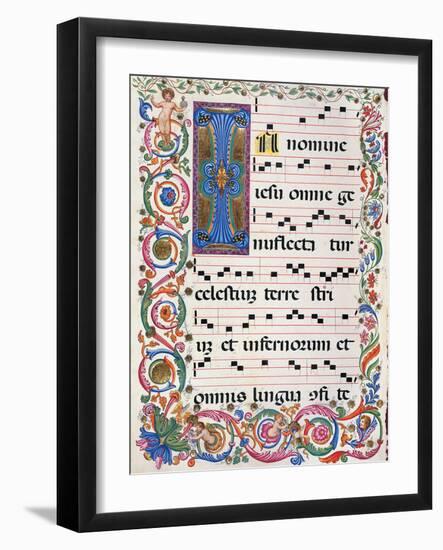 In nomine
iesu omne ge
nuflecta tur
celestiuʒ terre stri
uʒ et infernorum et
omnis lingua ꝯfi te